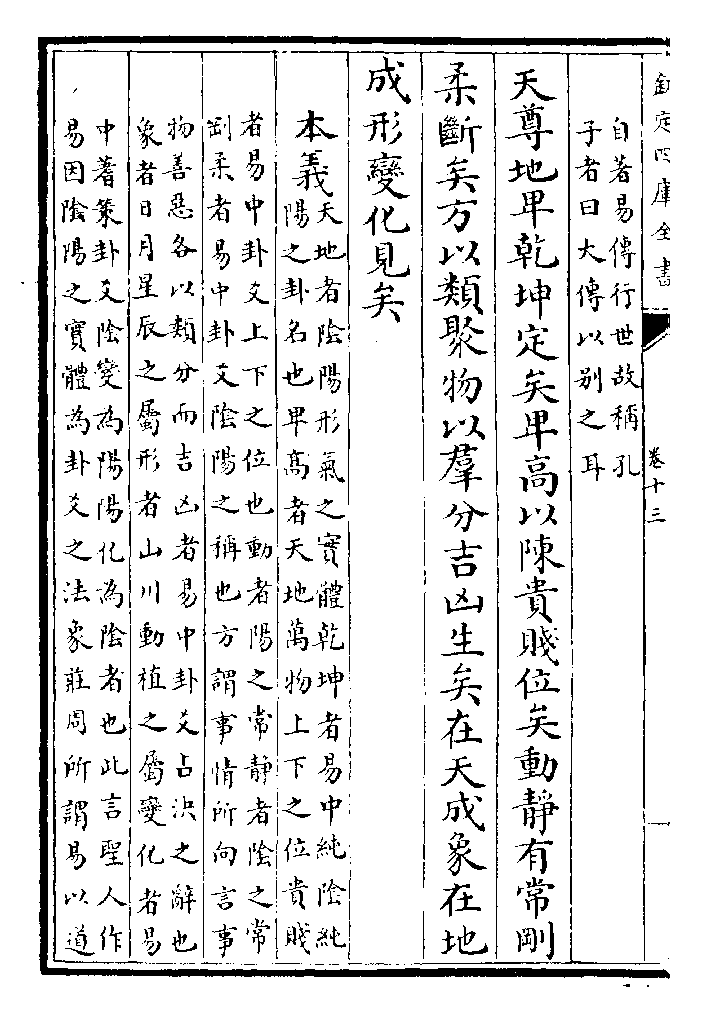 欽定四庫全書
卷十三
自著易傳行世故稱孔
子者曰大傳以別之耳
天尊地卑乾坤定矣卑高以陳貴賤位矣動靜有常剛
柔斷矣方以類聚物以羣分吉凶生矣在天成象在地
成形變化見矣
本義天地者陰陽形氣之實體乾坤者易中純陰純
陽之卦名也卑高者天地萬物上下之位貴賤
者易中卦爻上下之位也動者陽之常靜者陰之常
剛柔者易中卦爻陰陽之稱也方謂事情所向言事
物善惡各以類分而吉凶者易中卦爻占決之辭也
象者日月星辰之屬形者山川動植之屬變化者易
中蓍策卦爻陰變為陽陽化為陰者也此言聖人作
易因陰陽之實體為卦爻之法象莊周所謂易以道